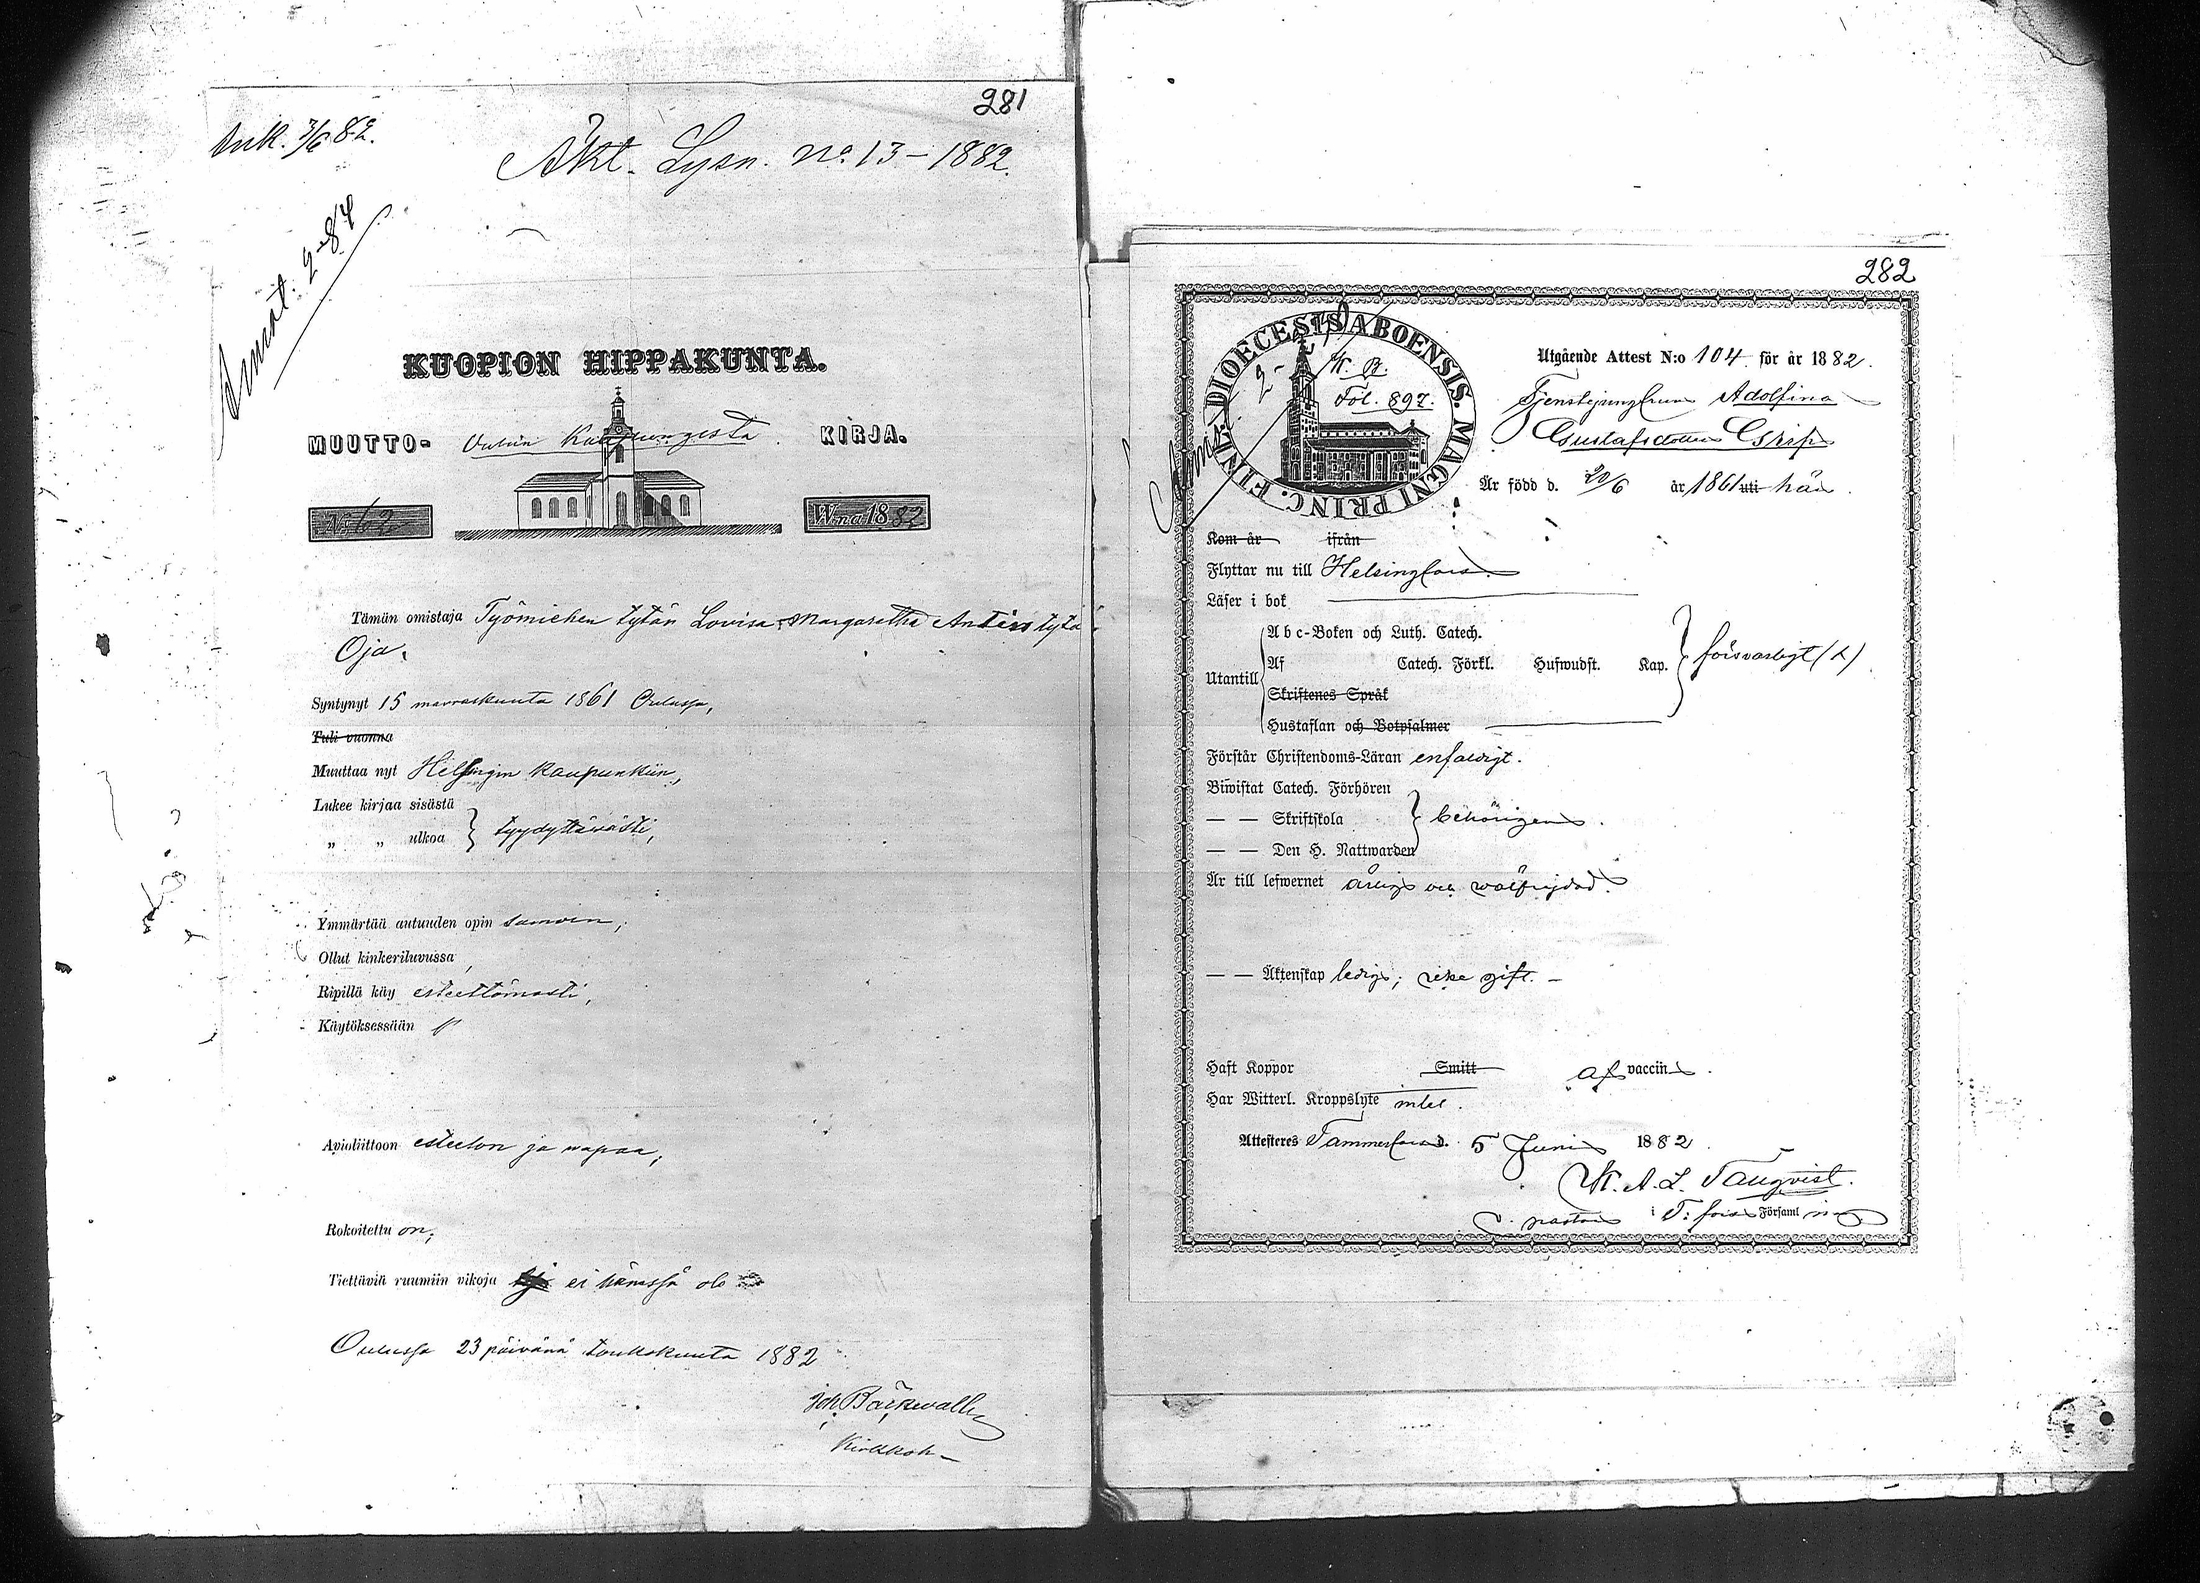 281
Ank. 3/6 82.
Äkt. Lysn. No. 13 - 1882.
Anmält. 2-84
KUOPION HIPPAKUNTA.
MUUTTO- Oulun Kaupungista KIRJA.
N:o 62 W:na 1882
Tämän omistaja Työmiehen tytär Lovisa Margaretha Antintytär
Oja.
Syntynyt 15 marraskuuta 1861 Oulussa,
Tuli vuonna
Muuttaa nyt Helsingin kaupunkiin,
Lukee kirjaa sisästä
„ „ ulkoa } tyydyttävästi,
Ymmärtää autuuden opin samoin,
Ollut kinkeriluvussa
Ripillä käy esteettömästi,
Käytöksessään
Avioliittoon esteetön ja wapaa,
Rokoitettu on,
Tiettäviä ruumiin vikoja ei hänessä ole
Oulussa 23 päivänä toukokuuta 1882
Joh. Bäckvall
Kirkkoh.
282
FINL. DIOECESIS ABOENSIS. MAGNI PRINC.
K. B.
Fol. 897.
Utgående Attest N:o 104 för år 1882.
Tjenstejungfrun Adolfina
Gustafsdotter
Är född d. 20/6 år 1861 uti här.
Kom år ifrån
Flyttar nu till Helsingfors.
Läser i bok
Utantill
Abc-Boken och Luth. Catech.
Af Catech. Förkl. Hufwudst. Kap. } försvarligt
Skriftenes Språk
Hustaflan och Botpsalmer
Förstår Christendoms-Läran enfaldigt.
Biwistat Catech. Förhören
— — Skriftskola } behörigen.
— — Den H. Nattwarden
Är till lefwernet ärlig och wälfrejdad.
— — Äktenskap ledig; icke gift. —
Haft Koppor Smitt af vaccin.
Har Witterl. Kroppslyte intet.
Attesteras Tammerfors d. 5 Juni 1882
K. A. L. Tauqvist.
v. pastor i T:fors Församling